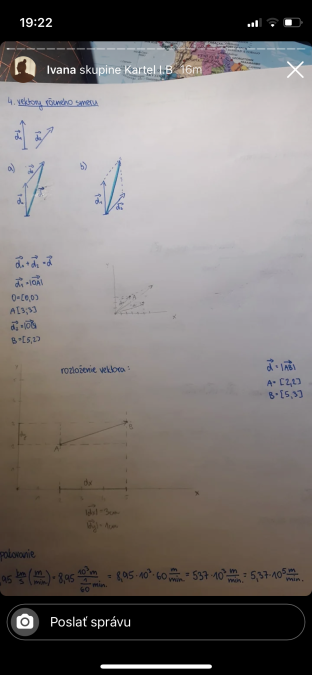 19:22
Ivana skupine Kartel I.B 16m
4. vektory rôzneho smeru
a) b)
d₁ + d₂ = d
d₁ = |OA|
O=[0,0]
A[3,3]
d₂ = |OB|
B=[5,2]
rozloženie vektora:
d = |AB|
A = [2,2]
B = [5,3]
,95 km/s (m/min) = 8,95 10³m / 1/60 min. = 8,95·10³·60 m/min. = 537·10³ m/min. = 5,37·10⁵ m/min.
Poslať správu